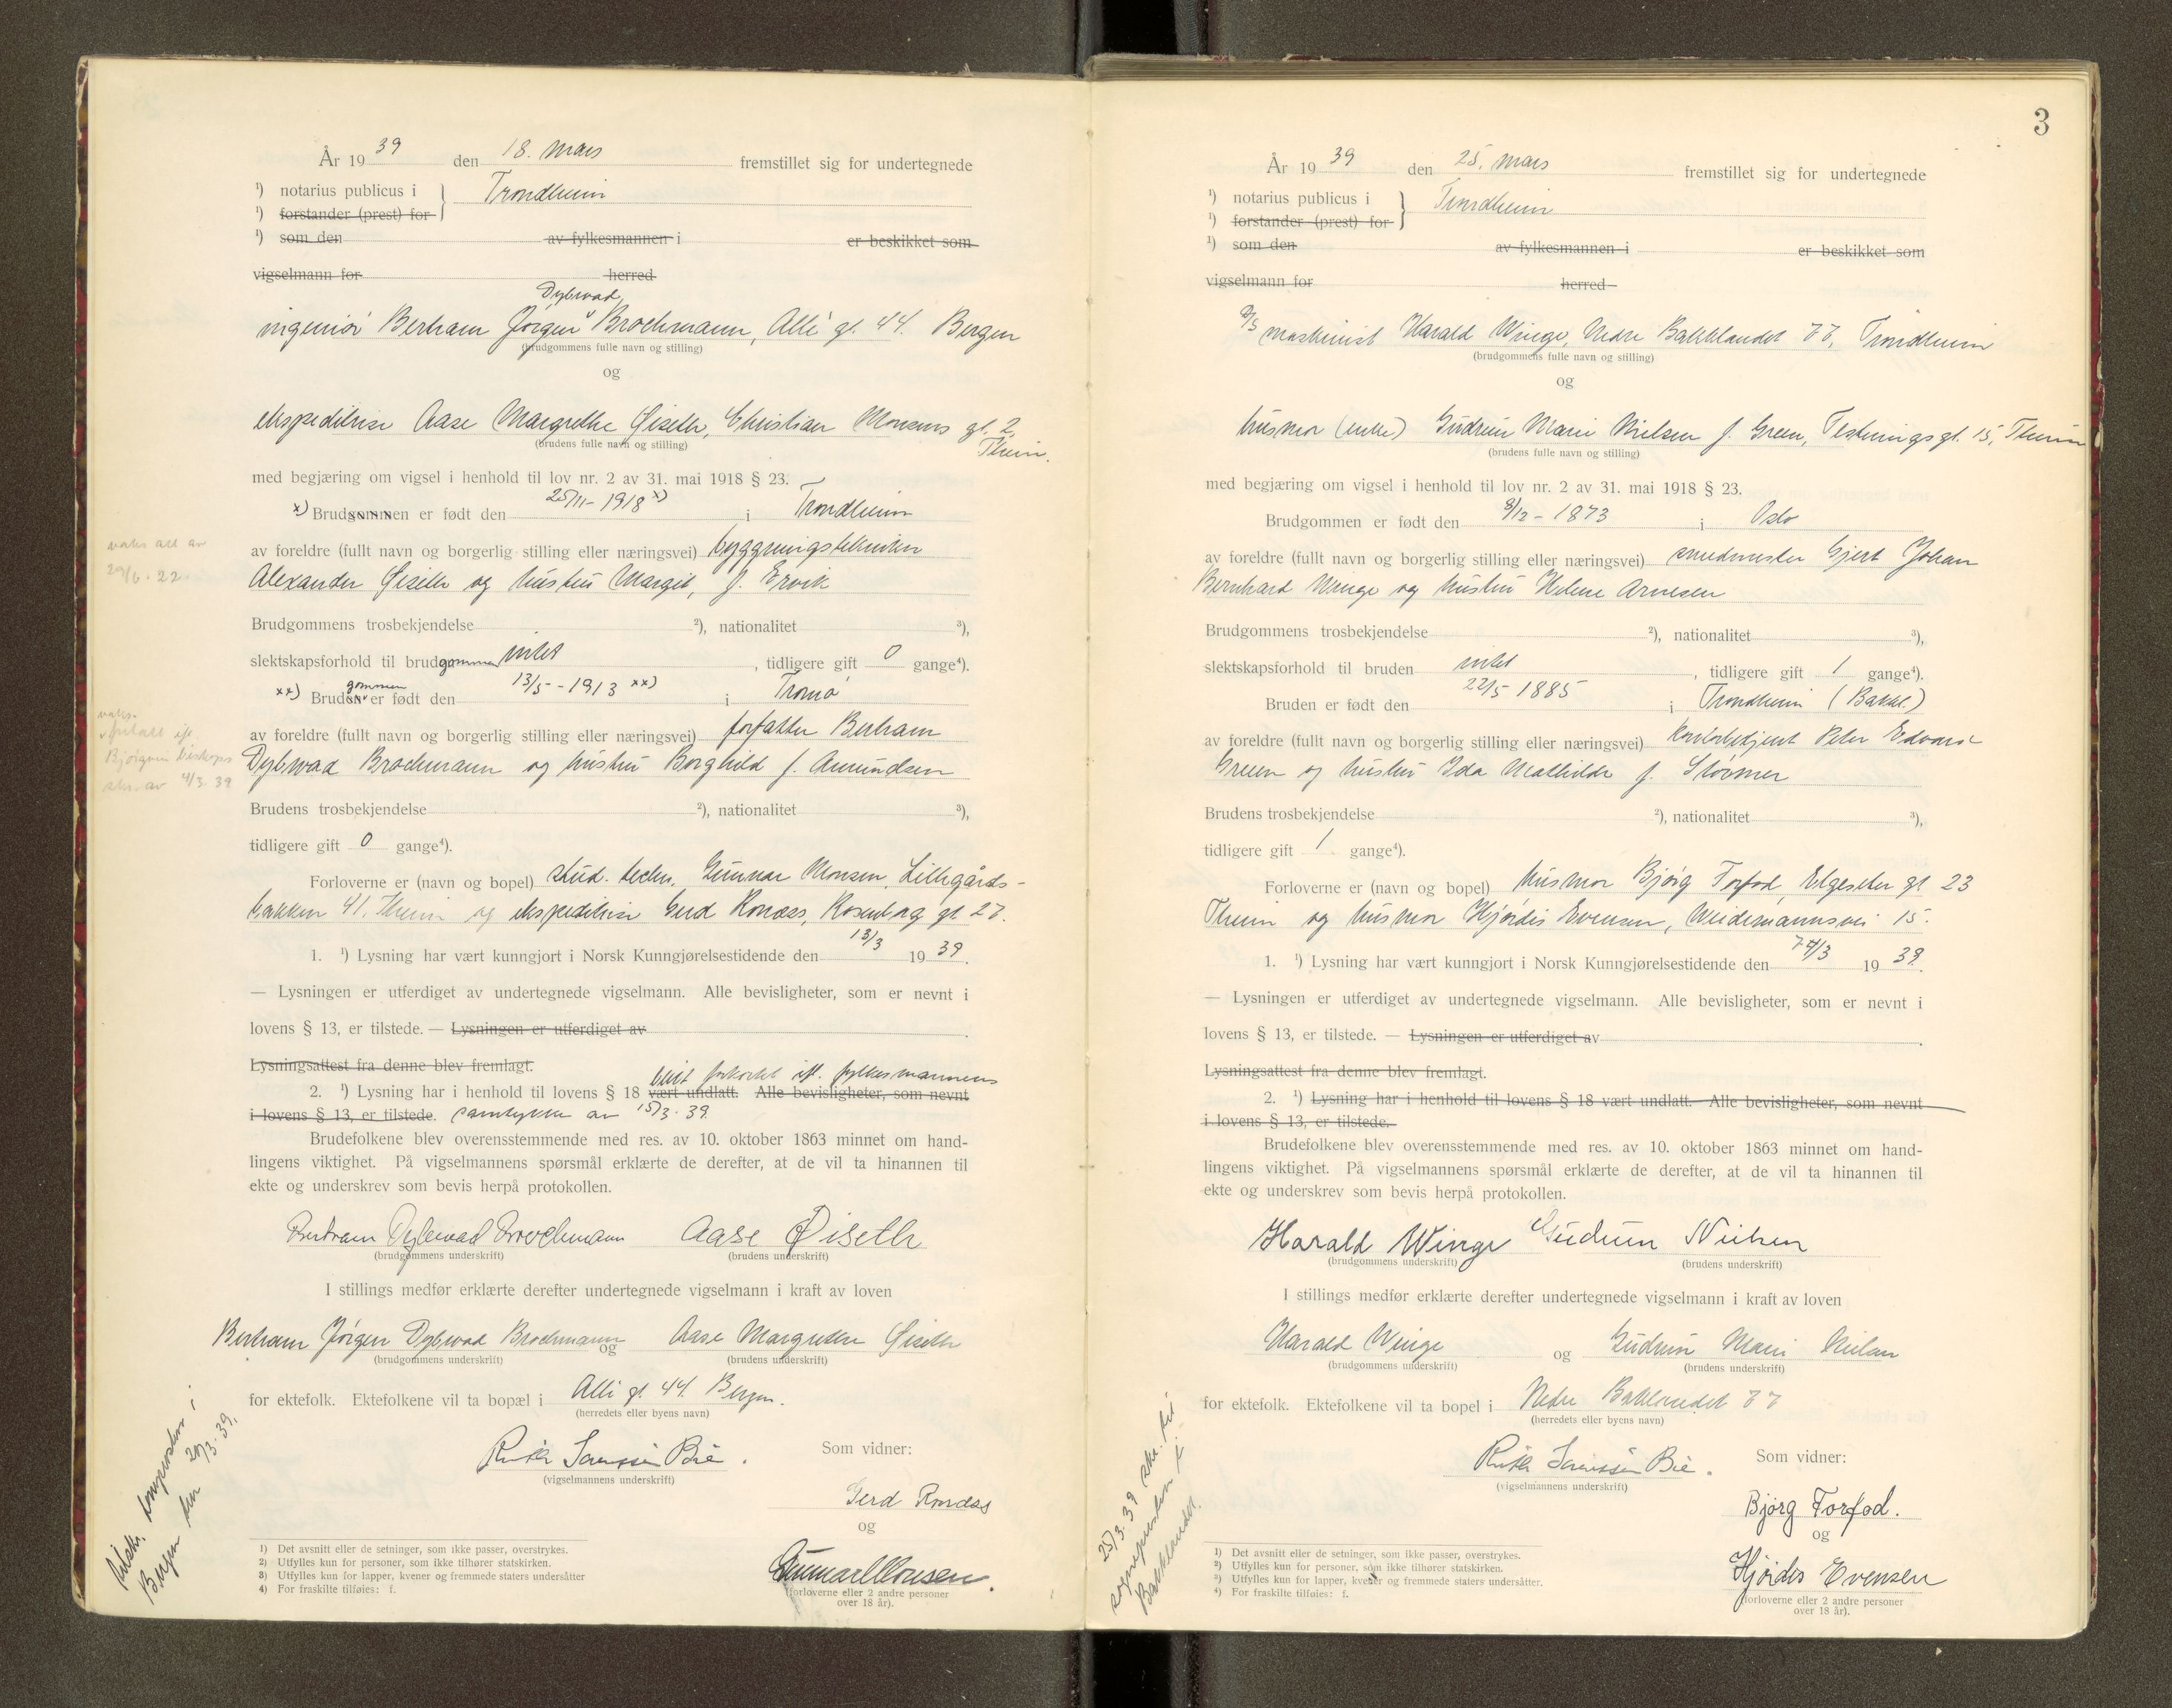 År 1939 den 18. mars fremstillet sig for undertegnede
¹) notarius publicus i Trondheim
¹) forstander (prest) for
¹) som den av fylkesmannen i er beskikket som
vigselmann for herred
Dybwad
ingeniør Bertram Jørgen Brochmann, Allé gt. 44. Bergen
(brudgommens fulle navn og stilling)
og
ekspeditrise Aase Margrethe Øiseth, Christian Monsens gt. 2,
Theim.
(brudens fulle navn og stilling)
med begjæring om vigsel i henhold til lov nr. 2 av 31. mai 1918 § 23.
x) Brudgommen er født den 25/11-1918 x) i Trondheim
av foreldre (fullt navn og borgerlig stilling eller næringsvei) byggningstekniker
Alexander Øiseth og hustru Margit, f. Ervik
vaks att av
29/6.22.
Brudgommens trosbekjendelse ²), nationalitet ³),
slektskapsforhold til brudgommen intet, tidligere gift 0 gange⁴).
xx) Brudgommen er født den 13/5-1913 xx) i Tromø
av foreldre (fullt navn og borgerlig stilling eller næringsvei) forfatter Bertram
Dybwad Brochmann og hustru Borghild f. Amundsen
vaks.
Bjørgvin Biskops
skr. av 4/3.39
Brudens trosbekjendelse ²), nationalitet ³),
tidligere gift 0 gange⁴).
Forloverne er (navn og bopel) stud. techn. Gunnar Monsen, Lillegårds-
bakken 41, Theim og ekspeditrise Gerd Rondas, Rosenborg gt. 27.
1. ¹) Lysning har vært kunngjort i Norsk Kunngjørelsestidende den 13/3 1939.
— Lysningen er utferdiget av undertegnede vigselmann. Alle bevisligheter, som er nevnt i
lovens § 13, er tilstede. — Lysningen er utferdiget av
Lysningsattest fra denne blev fremlagt.
blitt forkortet ifl. fylkesmannens
2. ¹) Lysning har i henhold til lovens § 18 vært undlatt. Alle bevisligheter, som nevnt
i lovens § 13, er tilstede. samtykke av 15/3.39.
Brudefolkene blev overensstemmende med res. av 10. oktober 1863 minnet om hand-
lingens viktighet. På vigselmannens spørsmål erklærte de derefter, at de vil ta hinannen til
ekte og underskrev som bevis herpå protokollen.
Bertram Dybwad Brochmann Aase Øiseth
(brudgommens underskrift) (brudens underskrift)
I stillings medfør erklærte derefter undertegnede vigselmann i kraft av loven
Bertram Jørgen Dybwad Brochmann og Aase Margrethe Øiseth
(brudgommens underskrift) (brudens underskrift)
for ektefolk. Ektefolkene vil ta bopæl i Allé gt. 44. Bergen.
(herredets eller byens navn)
Ruth Sørenssen Bie.
(vigselmannens underskrift)
Som vidner:
Gerd Rondas
og
Gunnar Monsen.
(forloverne eller 2 andre personer
over 18 år).
Bergen den 20/3.39.
1) Det avsnitt eller de setninger, som ikke passer, overstrykes.
2) Utfylles kun for personer, som ikke tilhører statskirken.
3) Utfylles kun for lapper, kvener og fremmede staters undersåtter
4) For fraskilte tilføies: f.
3
År 1939 den 25. mars fremstillet sig for undertegnede
¹) notarius publicus i Trondheim
¹) forstander (prest) for
¹) som den av fylkesmannen i er beskikket som
vigselmann for herred
maskinist Harald Winge, Nedre Bakklandet 77, Trondheim
(brudgommens fulle navn og stilling)
og
husmor (enke) Gudrun Marie Nielsen f. Green, Festningsgt. 15, Theim
(brudens fulle navn og stilling)
med begjæring om vigsel i henhold til lov nr. 2 av 31. mai 1918 § 23.
Brudgommen er født den 8/12-1873 i Oslo
av foreldre (fullt navn og borgerlig stilling eller næringsvei) smedmester Gjert Johan
Bernhard Winge og hustru Helene Arnesen
Brudgommens trosbekjendelse ²), nationalitet ³),
slektskapsforhold til bruden intet, tidligere gift 1 gange⁴).
Bruden er født den 22/5 1885 i Trondheim (Bakkl.)
av foreldre (fullt navn og borgerlig stilling eller næringsvei) kontorbetjent Peter Edvard
Green og hustru Ida Mathilde f. Størmer
Brudens trosbekjendelse ²), nationalitet ³),
tidligere gift 1 gange⁴).
Forloverne er (navn og bopel) husmor Bjørg Forfod, Elgeseter gt 23
Theim og husmor Hjørdis Evensen, Weidemannsvei 15.
1. ¹) Lysning har vært kunngjort i Norsk Kunngjørelsestidende den 1939.
— Lysningen er utferdiget av undertegnede vigselmann. Alle bevisligheter, som er nevnt i
lovens § 13, er tilstede. — Lysningen er utferdiget av
Lysningsattest fra denne blev fremlagt.
2. ¹) Lysning har i henhold til lovens § 18 vært undlatt. Alle bevisligheter, som nevnt
i lovens § 13, er tilstede.
Brudefolkene blev overensstemmende med res. av 10. oktober 1863 minnet om hand-
lingens viktighet. På vigselmannens spørsmål erklærte de derefter, at de vil ta hinannen til
ekte og underskrev som bevis herpå protokollen.
Harald Winge Gudrun Nielsen
(brudgommens underskrift) (brudens underskrift)
I stillings medfør erklærte derefter undertegnede vigselmann i kraft av loven
Harald Winge og Gudrun Marie Nielsen
(brudgommens underskrift) (brudens underskrift)
for ektefolk. Ektefolkene vil ta bopel i Nedre Bakklandet 77
(herredets eller byens navn)
Ruth Sørenssen Bie.
(vigselmannens underskrift)
Som vidner:
Bjørg Forfod.
og
Hjørdis Evensen
(forloverne eller 2 andre personer
over 18 år).
25/3.39 skr. til
sognepresten i
Bakklandet.
1) Det avsnitt eller de setninger, som ikke passer, overstrykes.
2) Utfylles kun for personer, som ikke tilhører statskirken.
3) Utfylles kun for lapper, kvener og fremmede staters undersåtter.
4) For fraskilte tilføies: f.